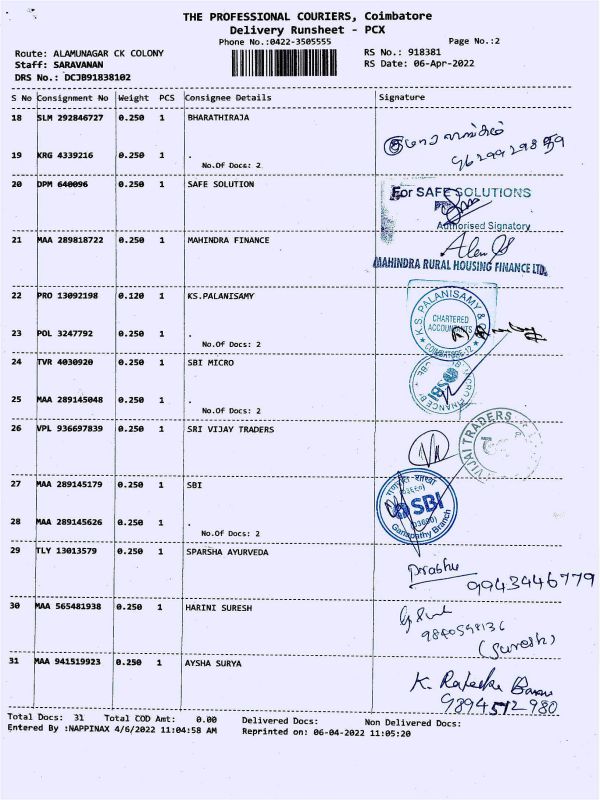 THE PROFESSIONAL COURIERS, Coimbatore
Delivery Runsheet - PCX
Phone No.:0422-3505555 Page No.:2
Route: ALAMUNAGAR CK COLONY RS No.: 918381
Staff: SARAVANAN RS Date: 06-Apr-2022
DRS No.: DCJB91838102
S No Consignment No Weight PCS Consignee Details Signature
18 SLM 292846727 0.250 1 BHARATHIRAJA
19 KRG 4339216 0.250 1 .
No.Of Docs: 2
20 DPM 640096 0.250 1 SAFE SOLUTION
For SAFE SOLUTIONS
Authorised Signatory
21 MAA 289818722 0.250 1 MAHINDRA FINANCE
MAHINDRA RURAL HOUSING FINANCE LTD.
22 PRO 13092198 0.120 1 KS.PALANISAMY
K.S. PALANISAMY &
CHARTERED
ACCOUNTANTS
COIMBATORE-12
23 POL 3247792 0.250 1 .
No.Of Docs: 2
24 TVR 4030920 0.250 1 SBI MICRO
SBI
25 MAA 289145048 0.250 1 .
No.Of Docs: 2
26 VPL 936697839 0.250 1 SRI VIJAY TRADERS
VIJAI TRADERS
27 MAA 289145179 0.250 1 SBI
SBI
Ganapathy Branch
28 MAA 289145626 0.250 1 .
No.Of Docs: 2
29 TLY 13013579 0.250 1 SPARSHA AYURVEDA
Prabhu
9943446779
30 MAA 565481938 0.250 1 HARINI SURESH
(Suresh)
31 MAA 941519923 0.250 1 AYSHA SURYA
9894512980
Total Docs: 31 Total COD Amt: 0.00 Delivered Docs: Non Delivered Docs:
Entered By :NAPPINAX 4/6/2022 11:04:58 AM Reprinted on: 06-04-2022 11:05:20